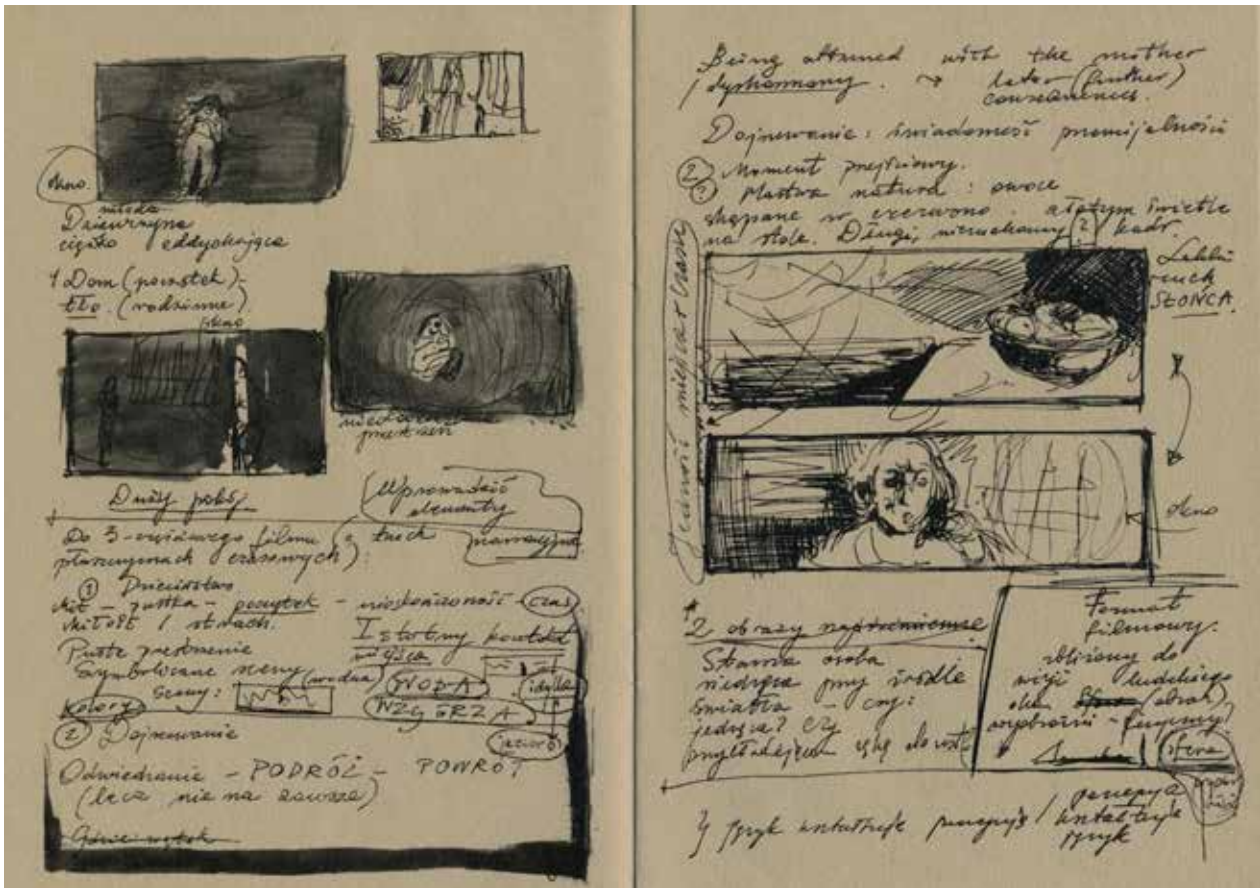 okno.
młoda
Dziewczyna
ciężko oddychająca
1 Dom (początek) -
tło. (rodzinne)
okno
przestrzeń
Duży pokój.
Wprowadzić
elementy
narracyjne
Do 3-częściowego filmu (o trzech
płaszczyznach czasowych):
① Dzieciństwo
mit - pustka - początek - nieskończoność - czas
miłość / strach.
Istotny kontekst
miejsca
Puste przestrzenie
Symboliczne sceny (wodna) WODA idylla
Sceny:
kolory WZGÓRZA
jezioro
② Dojrzewanie
Odwiedzanie - PODRÓŻ - POWRÓT
(lecz nie na zawsze)
Being attuned with the mother
/ dysharmony. → later (further)
consequences.
Dojrzewanie: świadomość przemijalności
② Moment przejściowy.
? Martwa natura: owoce
skąpane w czerwono złotym świetle
na stole. Długi, nieruchomy ? kadr.
Jedność miejsca + czasu
Lekki
ruch
SŁOŃCA.
okno
* 2 obrazy naprzemienne
Starsza osoba
siedząca przy źródle
światła - czy:
jedząca? czy
przykładająca rękę do ust
Format
filmowy.
zbliżony do
wizji ludzkiego
oka (obraz)
wyobraźni -
sfera
wyobraźni
język kształtuje percepcję / percepcja
kształtuje
język